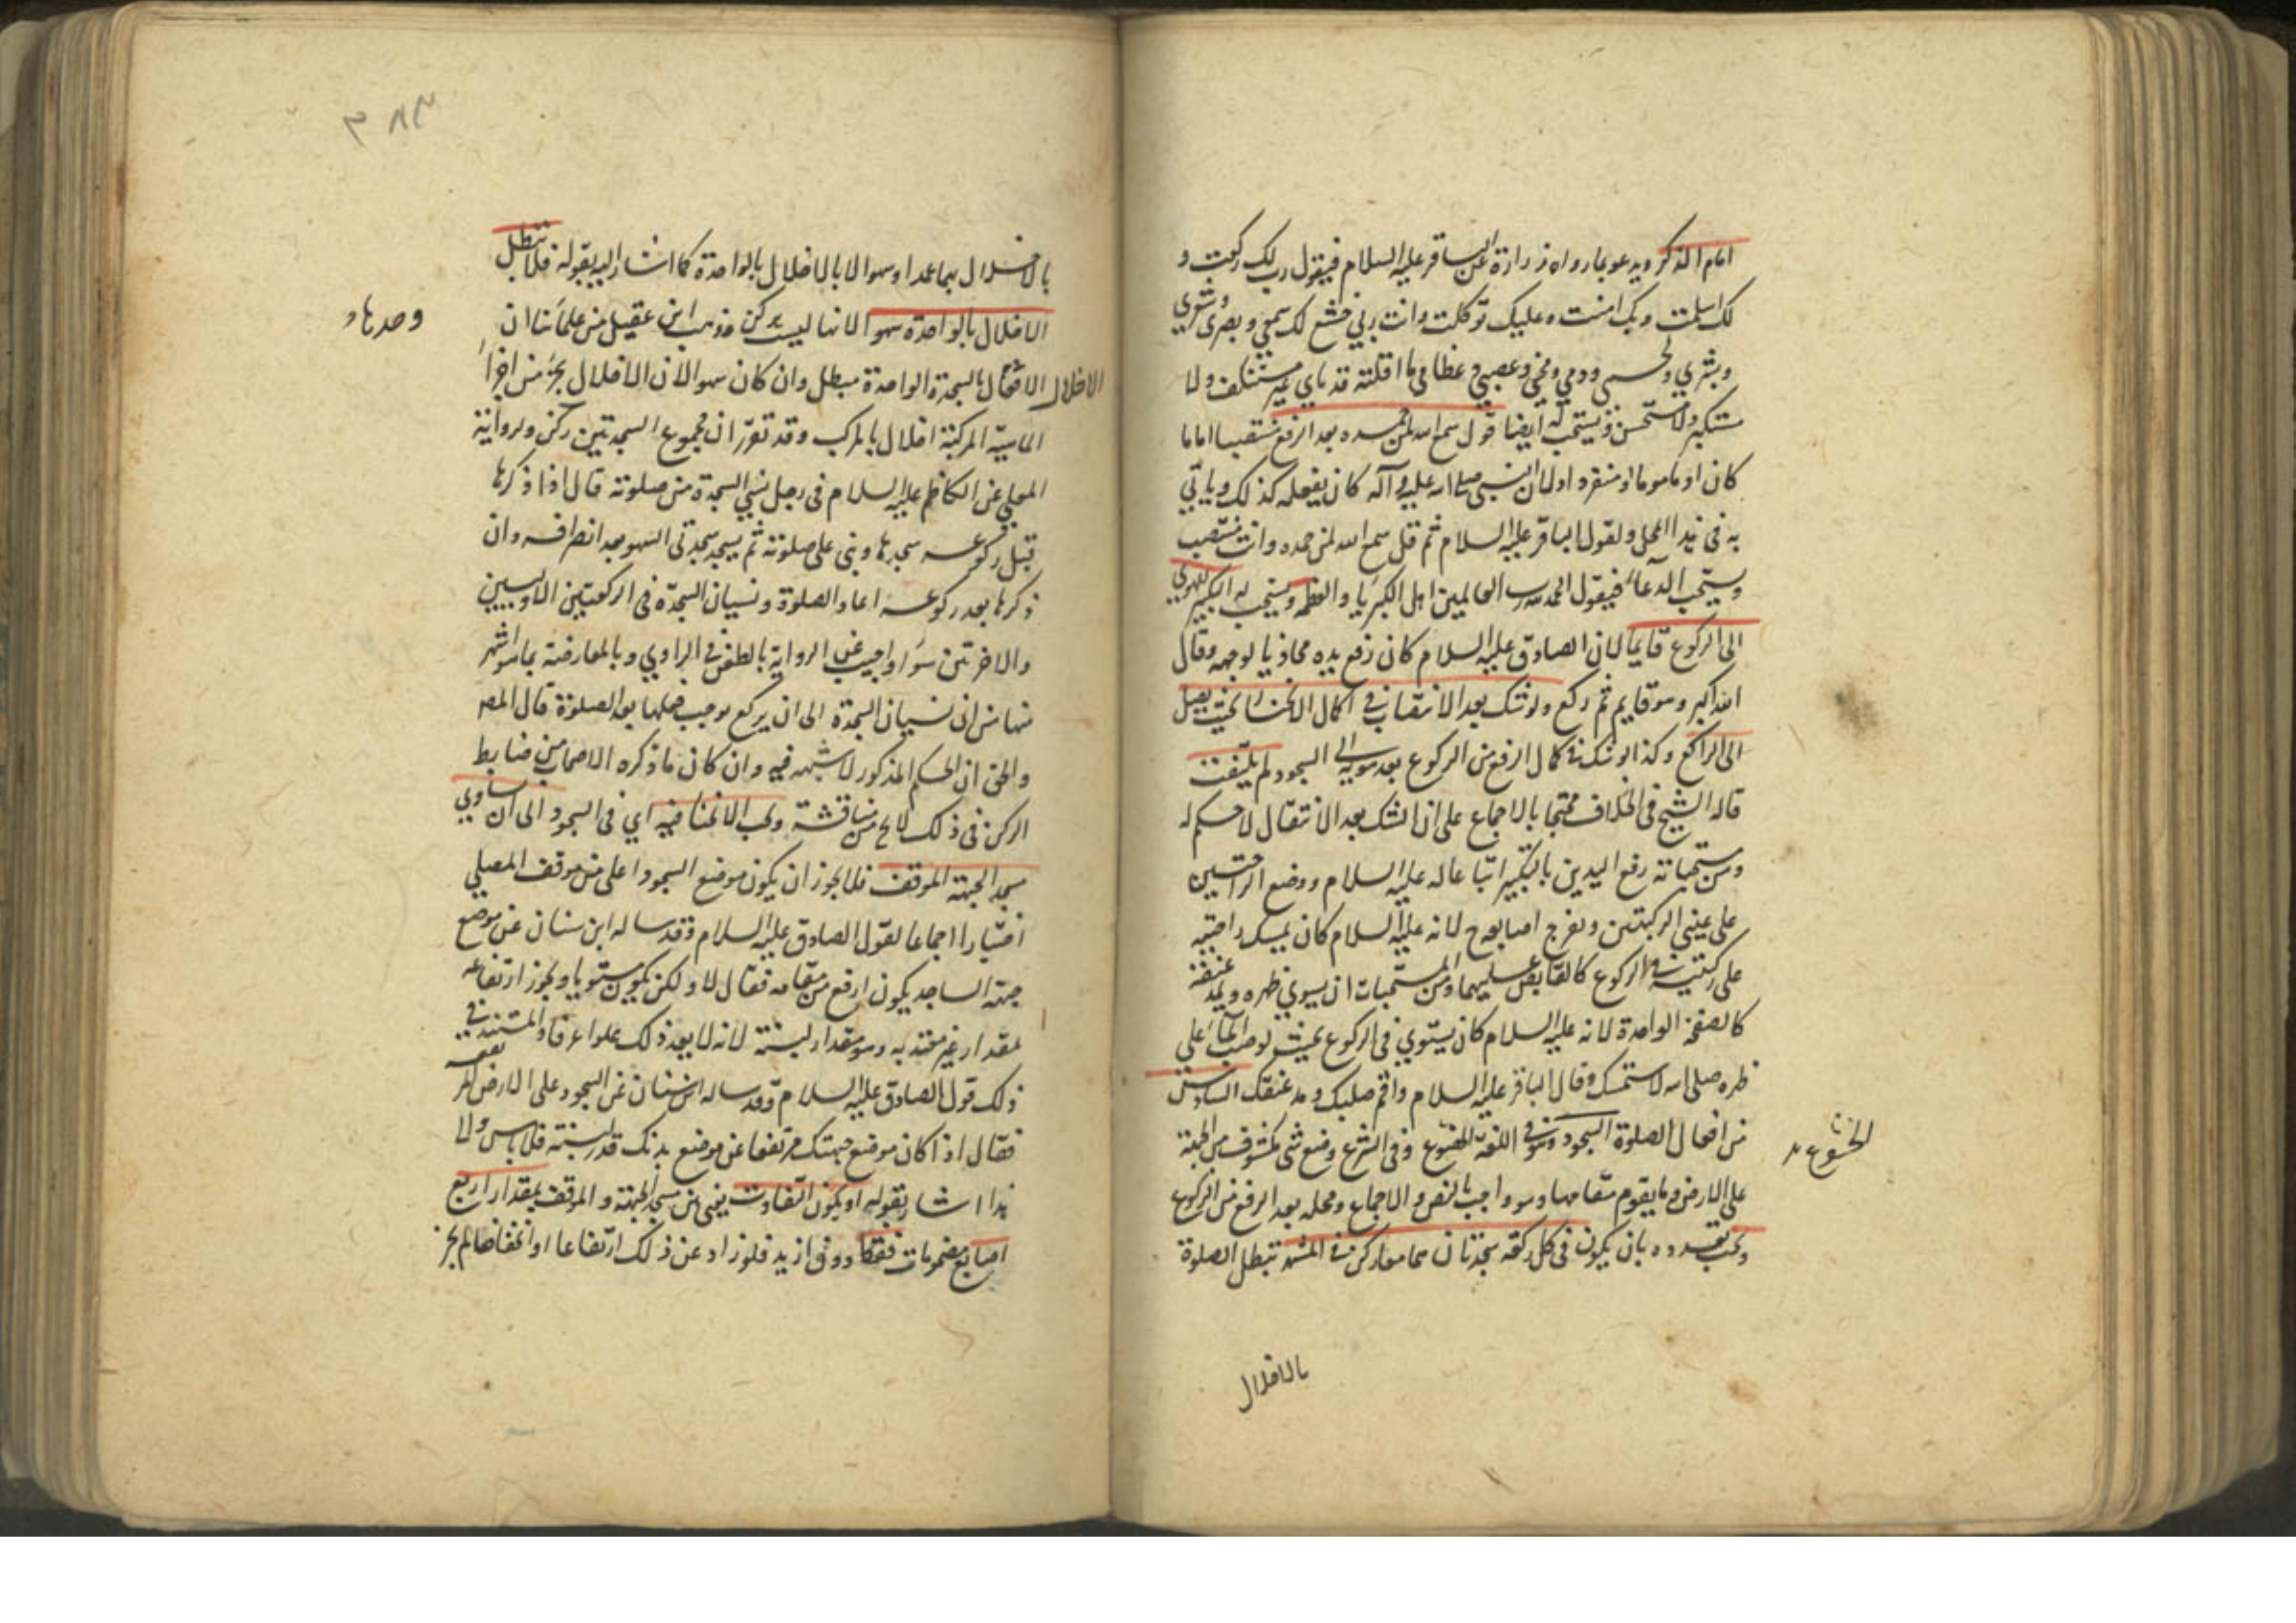 امام الذكر ويدعو بما رواه زرارة عن الباقر عليه السلام فيقول رب لك ركعت و
لك اسلمت وبك امنت وعليك توكلت وانت ربي خشع لك سمعي وبصري وشعري
وبشري ولحمي ودمي ومخي وعصبي وعظامي وما اقلته قدماي غير مستنكف ولا
مستكبر ولا مستحسر ويستحب له ايضا قول سمع الله لمن حمده بعد الرفع منتصبا اماما
كان او ماموما او منفردا لان النبي صلى الله عليه وآله كان يفعله كذلك وياتي
به في هذا المحل ولقول الباقر عليه السلام ثم قل سمع الله لمن حمده وانت منتصب
ويستحب الدعاء فيقول الحمد لله رب العالمين اهل الكبرياء والعظمة ويستحب له التكبير للهوي
الى الركوع قايما لان الصادق عليه السلام كان رفع يده محاذيا لوجهه وقال
الله اكبر وهو قايم ثم ركع ولو شك بعد الانتصاب في اكمال الانحناء بحيث يصل
الى الراكع وكذا لو شك في كمال الرفع من الركوع بعد هويه الى السجود لم يلتفت
قاله الشيخ في الخلاف محتجا بالاجماع على ان الشك بعد الانتقال لا حكم له
ومن مستحباته رفع اليدين بالتكبير اتباعا له عليه السلام ووضع الراحتين
على عيني الركبتين وتفرج اصابعه لانه عليه السلام كان يمسك راحتيه
على ركبتيه في الركوع كالقابض عليهما ومن المستحبات ان يسوي ظهره ويمد عنقه
كالصفحة الواحدة لانه عليه السلام كان يستوي في الركوع بحيث لو صب الماء على
ظهره صلى الله لاستمسك وقال الباقر عليه السلام واقم صلبك ومد عنقك السادس
من افعال الصلوة السجود وهو في اللغة الخضوع وفي الشرع وضع شئ مكشوف من الجبهة
الخشوع
على الارض وما يقوم مقامها وهو واجب بالنص والاجماع ومحله بعد الرفع من الركوع
ويجب تعدده بان يكون في كل ركعة سجدتان هما معا ركن في المشهور تبطل الصلوة
بالاخلال
٣٨٣
بالاخلال بهما عمدا وسهوا لا بالاخلال بالواحدة كما اشار اليه بقوله فلا تبطل
الاخلال بالواحدة سهوا لانها ليست بركن وذهب ابن عقيل من علمائنا ان
وحدها
الاخلال بالسجدة الواحدة مبطل وان كان سهوا لان الاخلال بجزء من اجزاء
الاخلال
الماهية المركبة اخلال بالمركب وقد تقرر ان مجموع السجدتين ركن ولرواية
المعلى عن الكاظم عليه السلام في رجل نسي السجدة من صلوته قال اذا ذكرها
قبل ركوعه سجدها وبنى على صلوته ثم يسجد سجدتي السهو بعد انصرافه وان
ذكرها بعد ركوعه اعاد الصلوة ونسيان السجدة في الركعتين الاوليين
والاخرتين سواء واجيب عن الرواية بالطعن في الراوي وبالمعارضة بما هو اشهر
منها من ان نسيان السجدة الى ان يركع موجب فعلها بعد الصلوة قال المص
والحق ان الحكم المذكور لا شبهة فيه وان كان ما ذكره الاصحاب من ضابط
الركن في ذلك لا يخ من مناقشة ويجب الانحناء فيه اي في السجود الى ان يساوي
مسجد الجبهة الموقف فلا يجوز ان يكون موضع السجود اعلى من موقف المصلي
اختيارا اجماعا لقول الصادق عليه السلام وقد ساله ابن سنان عن موضع
جبهة الساجد يكون ارفع من مقامه فقال لا ولكن يكون مستويا ويجوز ارتفاعه
بمقدار غير معتد به وهو مقدار لبنة لانه لا يعد ذلك علوا عرفا والمستند في
ذلك قول الصادق عليه السلام وقد ساله ابن سنان عن السجود على الارض المرتفعة
فقال اذا كان موضع جبهتك مرتفعا عن موضع بدنك قدر لبنة فلا باس ولا
هذا اشار بقوله او يكون التفاوت بينهما من مسجد الجبهة والموقف بمقدار اربع
اصابع مضمومات فقط دون ازيد فلو زاد عن ذلك ارتفاعا او انخفاضا لم يجز